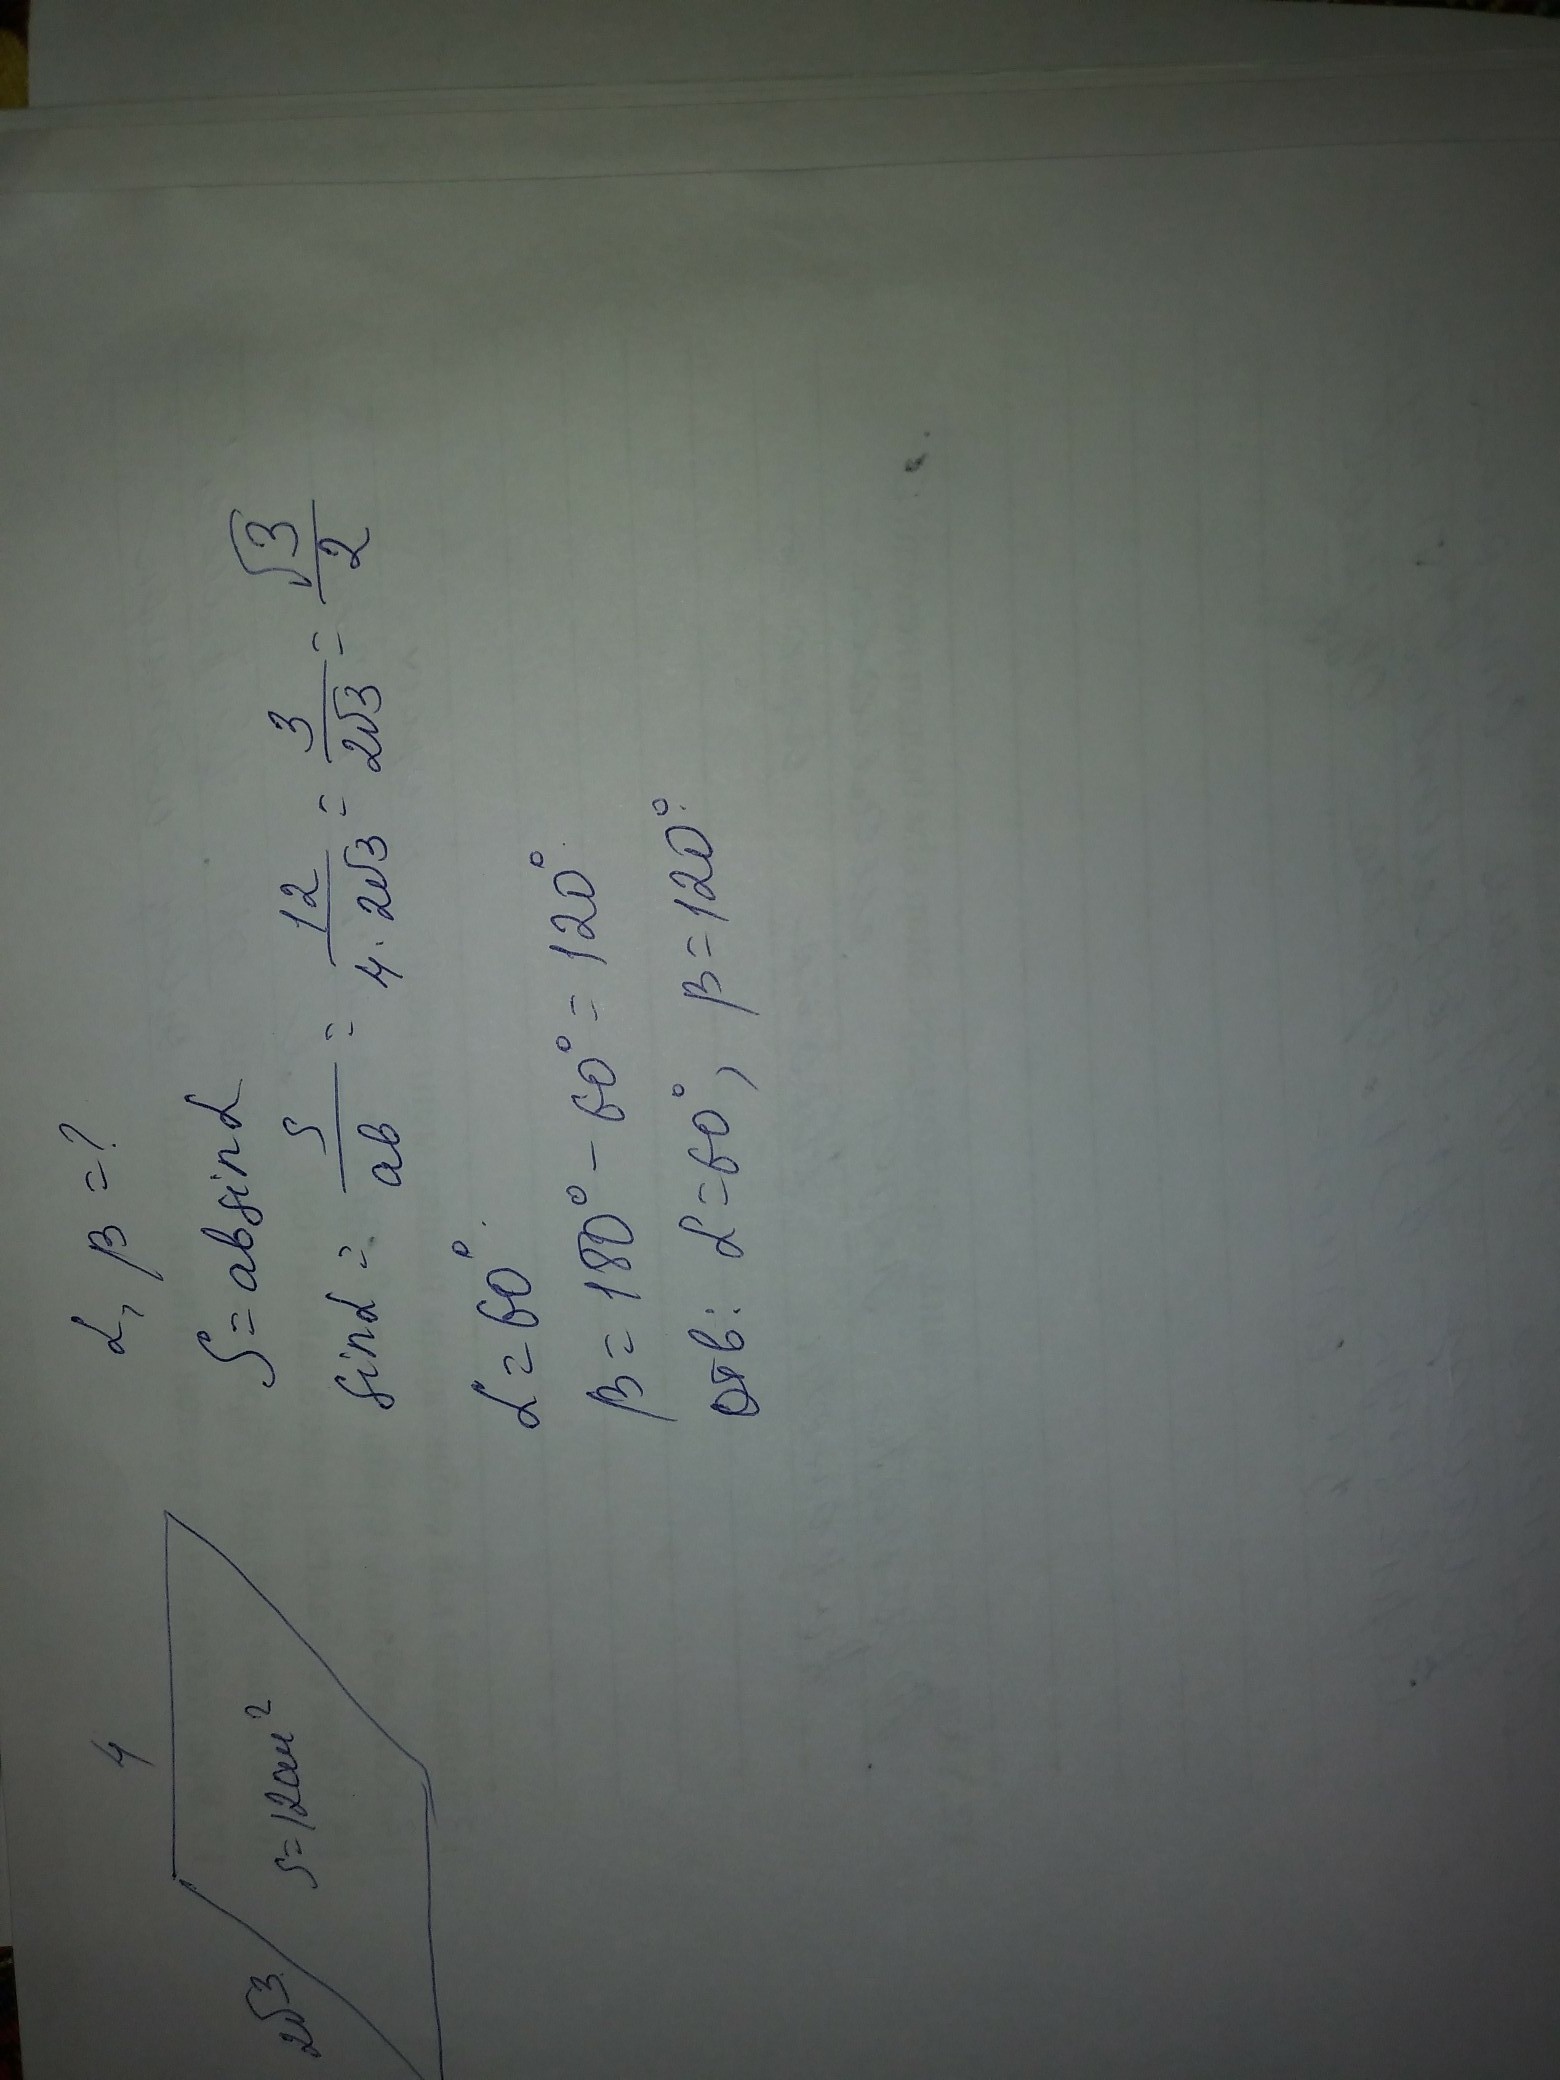 4
2√3
S=12см²
α, β=?
S=ab sinα
sinα = S/ab = 12/4·2√3 = 3/2√3 = √3/2
α=60°.
β=180°-60°=120°.
Отв: α=60°, β=120°.